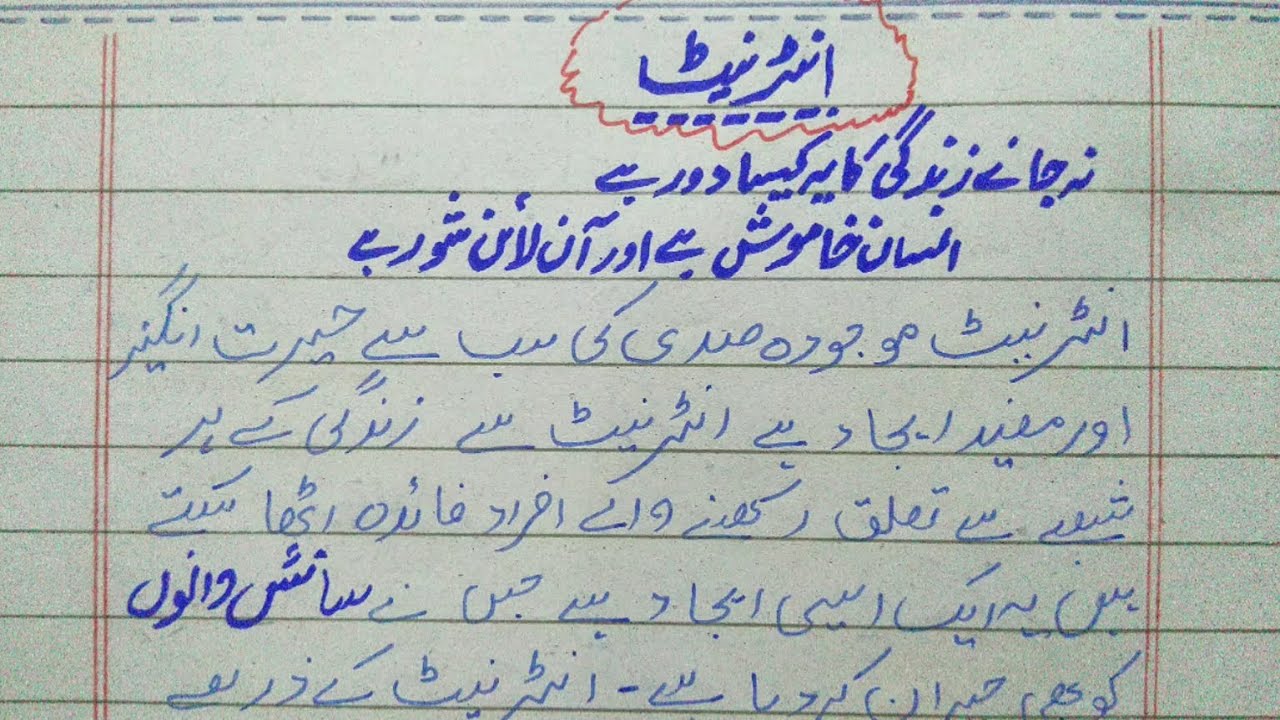 انٹرنیٹ
نہ جانے زندگی کا یہ کیسا دور ہے
انسان خاموش ہے اور آن لائن شور ہے
انٹرنیٹ موجودہ صدی کی سب سے حیرت انگیز
اور مفید ایجاد ہے انٹرنیٹ سے زندگی کے ہر
شعبے سے تعلق رکھنے والے افراد فائدہ اٹھا سکتے
ہیں یہ ایک ایسی ایجاد ہے جس نے سائنس دانوں
کو بھی حیران کر دیا ہے۔ انٹرنیٹ کے ذریعے